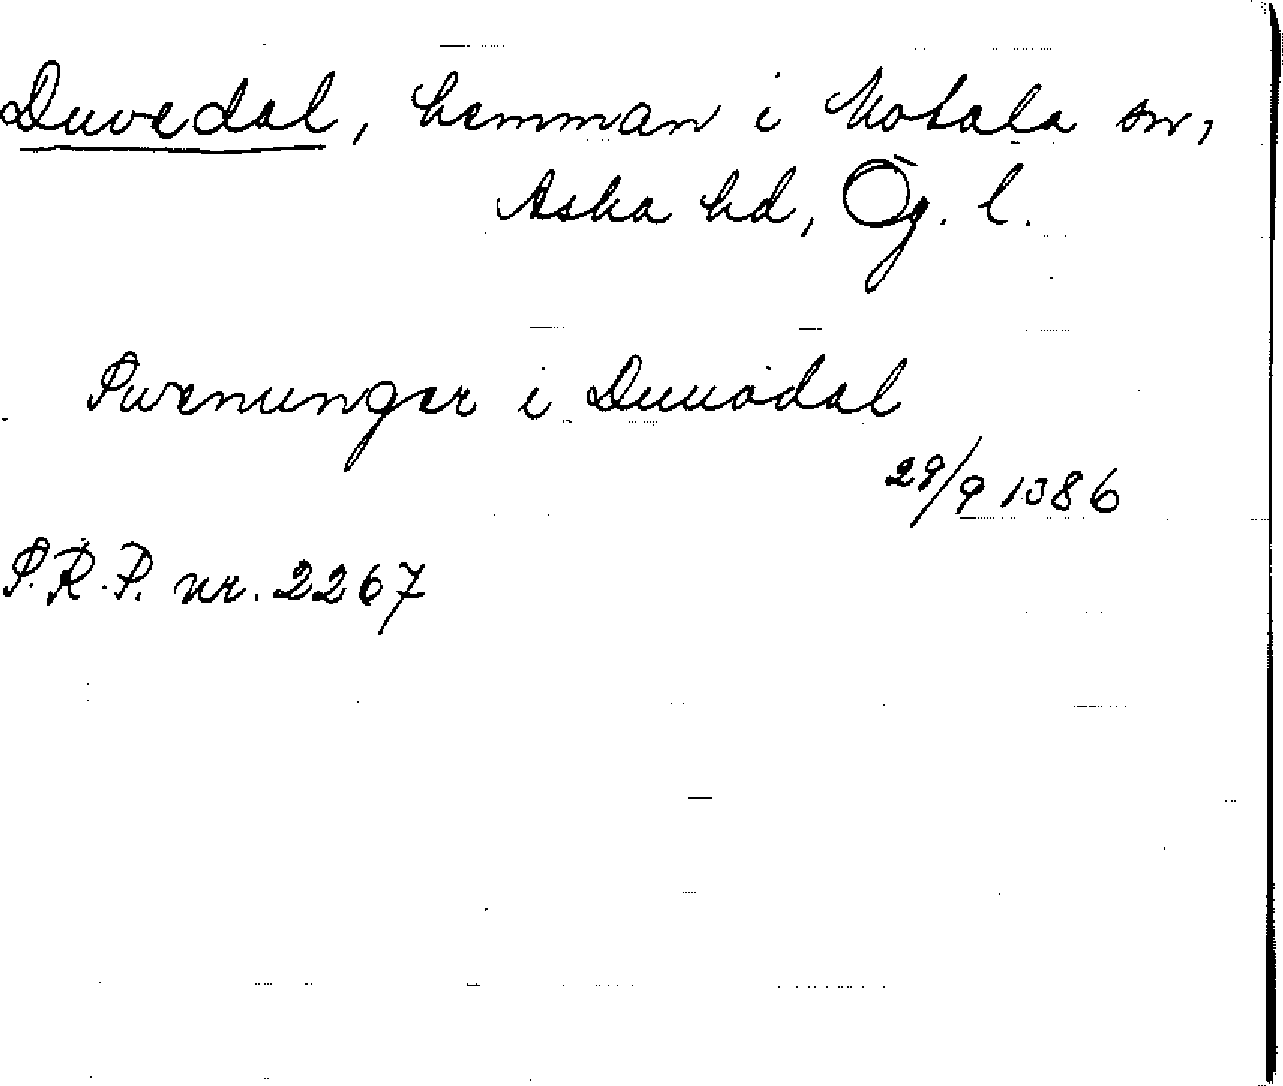 Duvedal, hemman i Motala sn,
Aska hd, Ög. l.
Swenunger i Duuadal
29/9 1386
S.R.P. nr. 2267